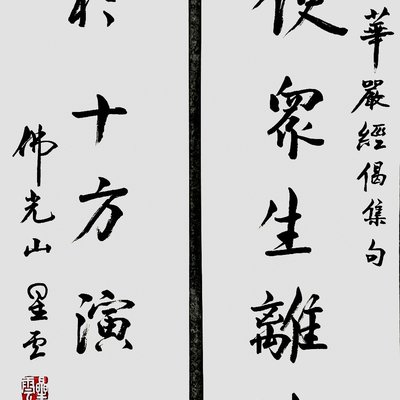 華嚴經偈集句
使眾生離
於十方演
佛光山星雲